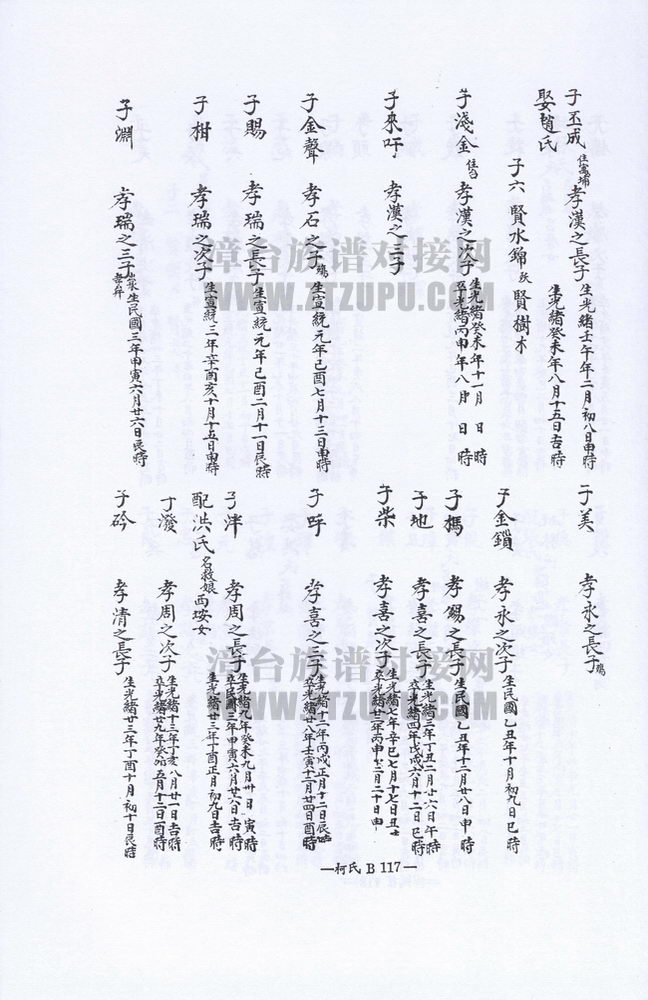 子丕成 住寓埔 孝漢之長子 生光緒壬午年二月初八日申時
娶趙氏 生光緒癸未年八月十五日吉時
子六 賢水錦 賢樹木
子淺金 孝漢之次子 生光緒癸未年十一月 日 時
卒光緒丙申年八月 日 時
子來吁 孝漢之三子
子金聲 孝石之子 生宣統元年己酉七月十三日申時
子賜 孝瑞之長子 生宣統元年己酉二月十一日辰時
子柑 孝瑞之次子 生宣統三年辛亥十月十五日申時
子淵 孝瑞之三子 生民國三年甲寅六月廿六日辰時
子美 孝永之長子
子金鎖 孝永之次子 生民國乙丑年十月初九日巳時
子 孝錫之長子 生民國乙丑年十二月廿八日申時
子地 孝喜之長子 生光緒三年丁丑二月廿六日午時
卒光緒四年戊戌六月十二日巳時
子柴 孝喜之次子 生光緒七年辛巳七月十七日丑
卒光緒廿二年丙申十二月二十日由
子吁 孝喜之三子 生光緒十二年丙戌正月十二日辰時
卒光緒廿八年壬寅十二月廿四日酉時
子泮 孝周之長子 生光緒九年癸未九月卅日寅時
卒民國三年甲寅六月廿六日吉時
配洪氏 西垵女 生光緒廿三年丁酉正月初九日吉時
子潑 孝周之次子 生光緒十三年丁亥八月廿一日吉時
卒光緒廿九年癸卯五月十二日酉時
子砱 孝清之長子 生光緒廿三年丁酉十月初十日辰時
漳台族谱对接网
WWW.ZTZUPU.COM
漳台族谱对接网
WWW.ZTZUPU.COM
—柯氏 B 117—